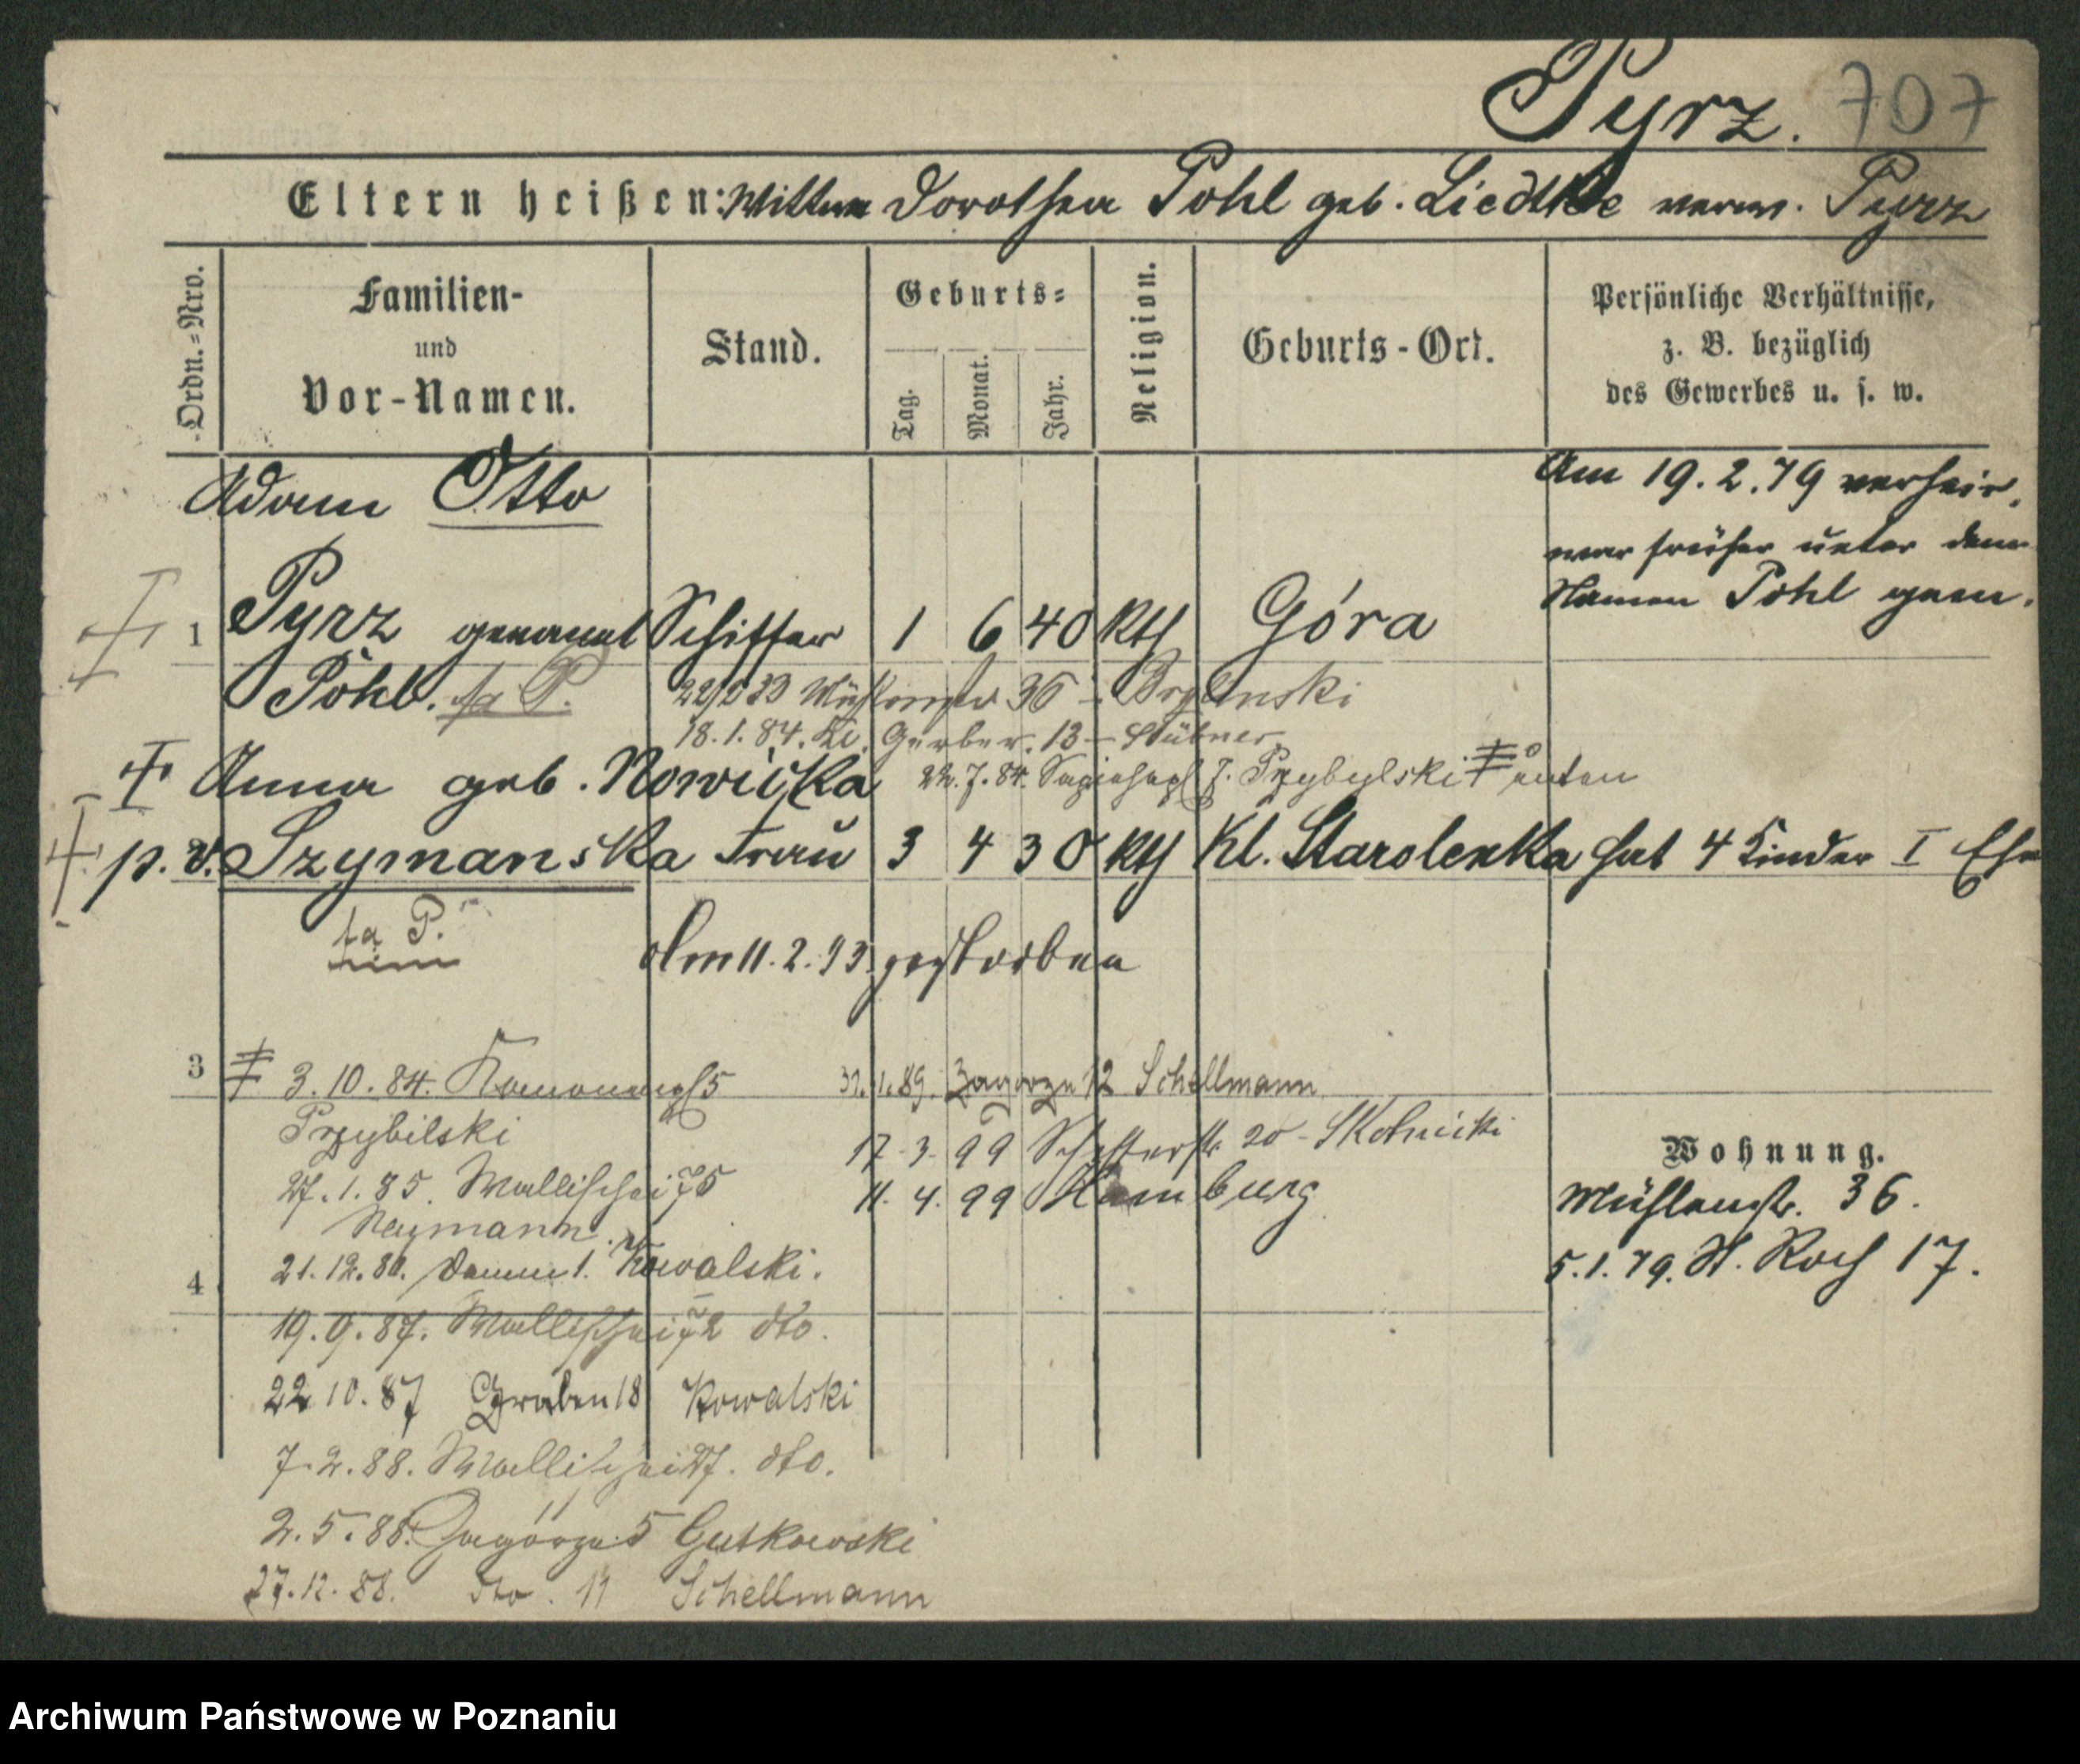 Pyrz. 707
Eltern heißen: Wittwe Dorothea Pohl geb. Liedtke verw. Pyrz
Ordn.=Nro.
Familien-
und
Vor-Namen.
Stand.
Geburts=
Tag.
Monat.
Jahr.
Religion.
Geburts-Ort.
Persönliche Verhältnisse,
z. B. bezüglich
des Gewerbes u. s. w.
Adam Otto
Am 19.2.79 verheir,
war früher unter dem
Namen Pohl gem.
1 Pyrz genannt Schiffer 1 6 40 Kth Góra
Pohl. fa P. Mühlenstr 36 -
18.1.84. Kl. Gerber. 13 - Stübner
Anna geb. Nowicka 22.7.84. Sapiehapl 7. Przybylski unten
p. v. Szymanska Frau 3 4 30 Kth Kl. Starolenka hat 4 Kinder I Ehe
fa P.
Am 11.2.93 gestorben
3 3.10.84. 5
Przybilski
27.1.85. Wallischei 75
Neymann.
21.12.86. Damm 1. Kowalski.
4
19.9.87. Wallischei 72 dto.
22 10.87 Graben 18 Kowalski
7.2.88. Wallischei 27. dto.
2.5.88. Zagorze 5 Gutkowski
27.12.88. dto. 11 Schellmann
31.1.89. Zagorze 12 Schellmann
17.3.99 Schifferstr. 20 - Skolnicki
11.4.99 Hamburg
Wohnung.
Mühlenstr. 36.
5.1.79. St. Roch 17.
Archiwum Państwowe w Poznaniu